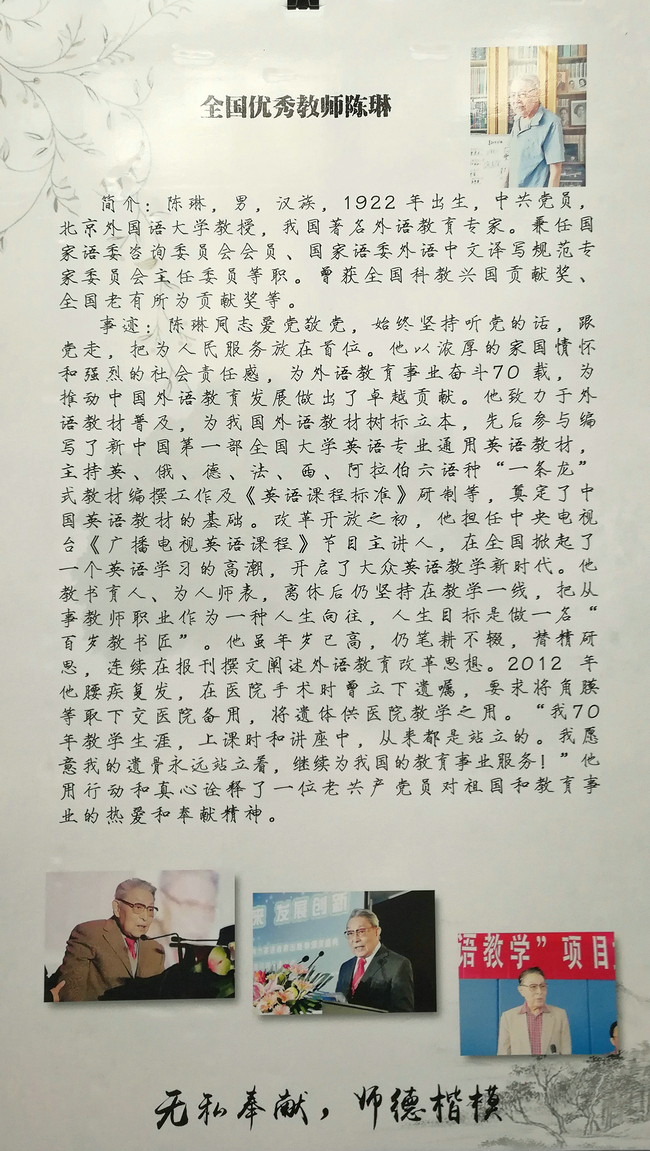 全国优秀教师陈琳
简介：陈琳，男，汉族，1922年出生，中共党员，
北京外国语大学教授，我国著名外语教育专家。兼任国
家语委咨询委员会会员、国家语委外语中文译写规范专
家委员会主任委员等职。曾获全国科教兴国贡献奖、
全国老有所为贡献奖等。
事迹：陈琳同志爱党敬党，始终坚持听党的话，跟
党走，把为人民服务放在首位。他以浓厚的家国情怀
和强烈的社会责任感，为外语教育事业奋斗70载，为
推动中国外语教育发展做出了卓越贡献。他致力于外
语教材普及，为我国外语教材树标立本，先后参与编
写了新中国第一部全国大学英语专业通用英语教材，
主持英、俄、德、法、西、阿拉伯六语种“一条龙”
式教材编撰工作及《英语课程标准》研制等，奠定了中
国英语教材的基础。改革开放之初，他担任中央电视
台《广播电视英语课程》节目主讲人，在全国掀起了
一个英语学习的高潮，开启了大众英语教学新时代。他
教书育人、为人师表，离休后仍坚持在教学一线，把从
事教师职业作为一种人生向往，人生目标是做一名“
百岁教书匠”。他虽年岁已高，仍笔耕不辍，潜精研
思，连续在报刊撰文阐述外语教育改革思想。2012年
他腰疾复发，在医院手术时曾立下遗嘱，要求将角膜
等取下交医院备用，将遗体供医院教学之用。“我70
年教学生涯，上课时和讲座中，从来都是站立的。我愿
意我的遗骨永远站立着，继续为我国的教育事业服务！”他
用行动和真心诠释了一位老共产党员对祖国和教育事
业的热爱和奉献精神。
来 发展创新
语教学”项目
无私奉献，师德楷模